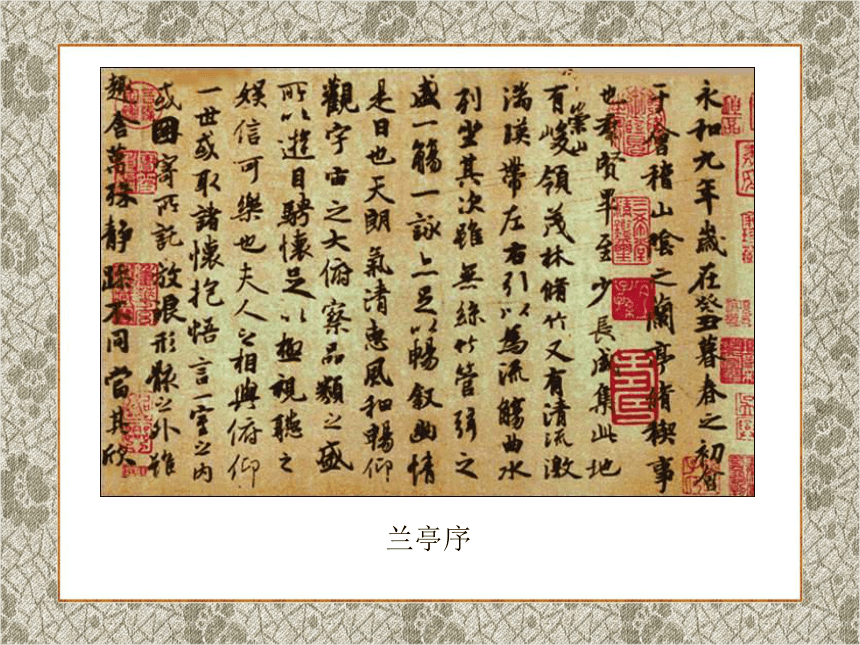 永和九年歲在癸丑暮春之初會
于會稽山陰之蘭亭脩稧事
也羣賢畢至少長咸集此地
有崇山峻領茂林脩竹又有清流激
湍暎帶左右引以為流觴曲水
列坐其次雖無絲竹管弦之
盛一觴一詠亦足以暢叙幽情
是日也天朗氣清惠風和暢仰
觀宇宙之大俯察品類之盛
所以遊目騁懷足以極視聽之
娛信可樂也夫人之相與俯仰
一世或取諸懷抱悟言一室之內
或因寄所託放浪形骸之外雖
趣舍萬殊靜躁不同當其欣
兰亭序